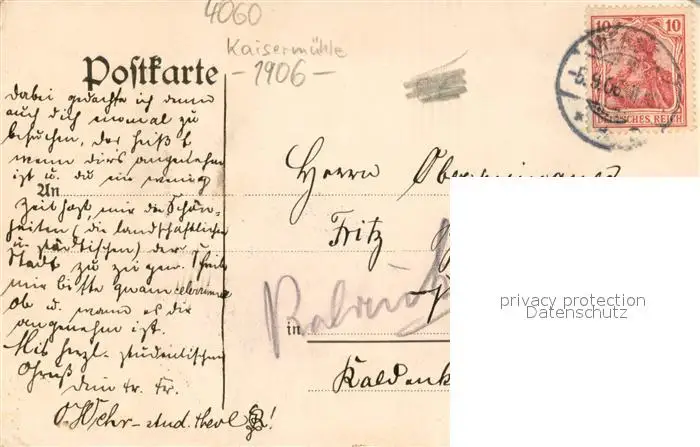 4060
Kaisermühle
- 1906 -
Postkarte
10 10
5.9.06
DEUTSCHES REICH
Dabei gedachte ich denn
auch dich einmal zu
besuchen, das heißt
wenn dirs angenehm
ist u. du ein wenig
An
Zeit hast, mir die Schön-
heiten (die landschaftlichen
u. städtischen) der
Stadt zu zeigen. Theile
mir bitte
ob u. wann es dir
angenehm ist.
Mit herzl. studentischen
Gruß
dein tr. Fr.
stud. theol
Herrn
Fritz
in
Kaldenk
privacy protection
Datenschutz